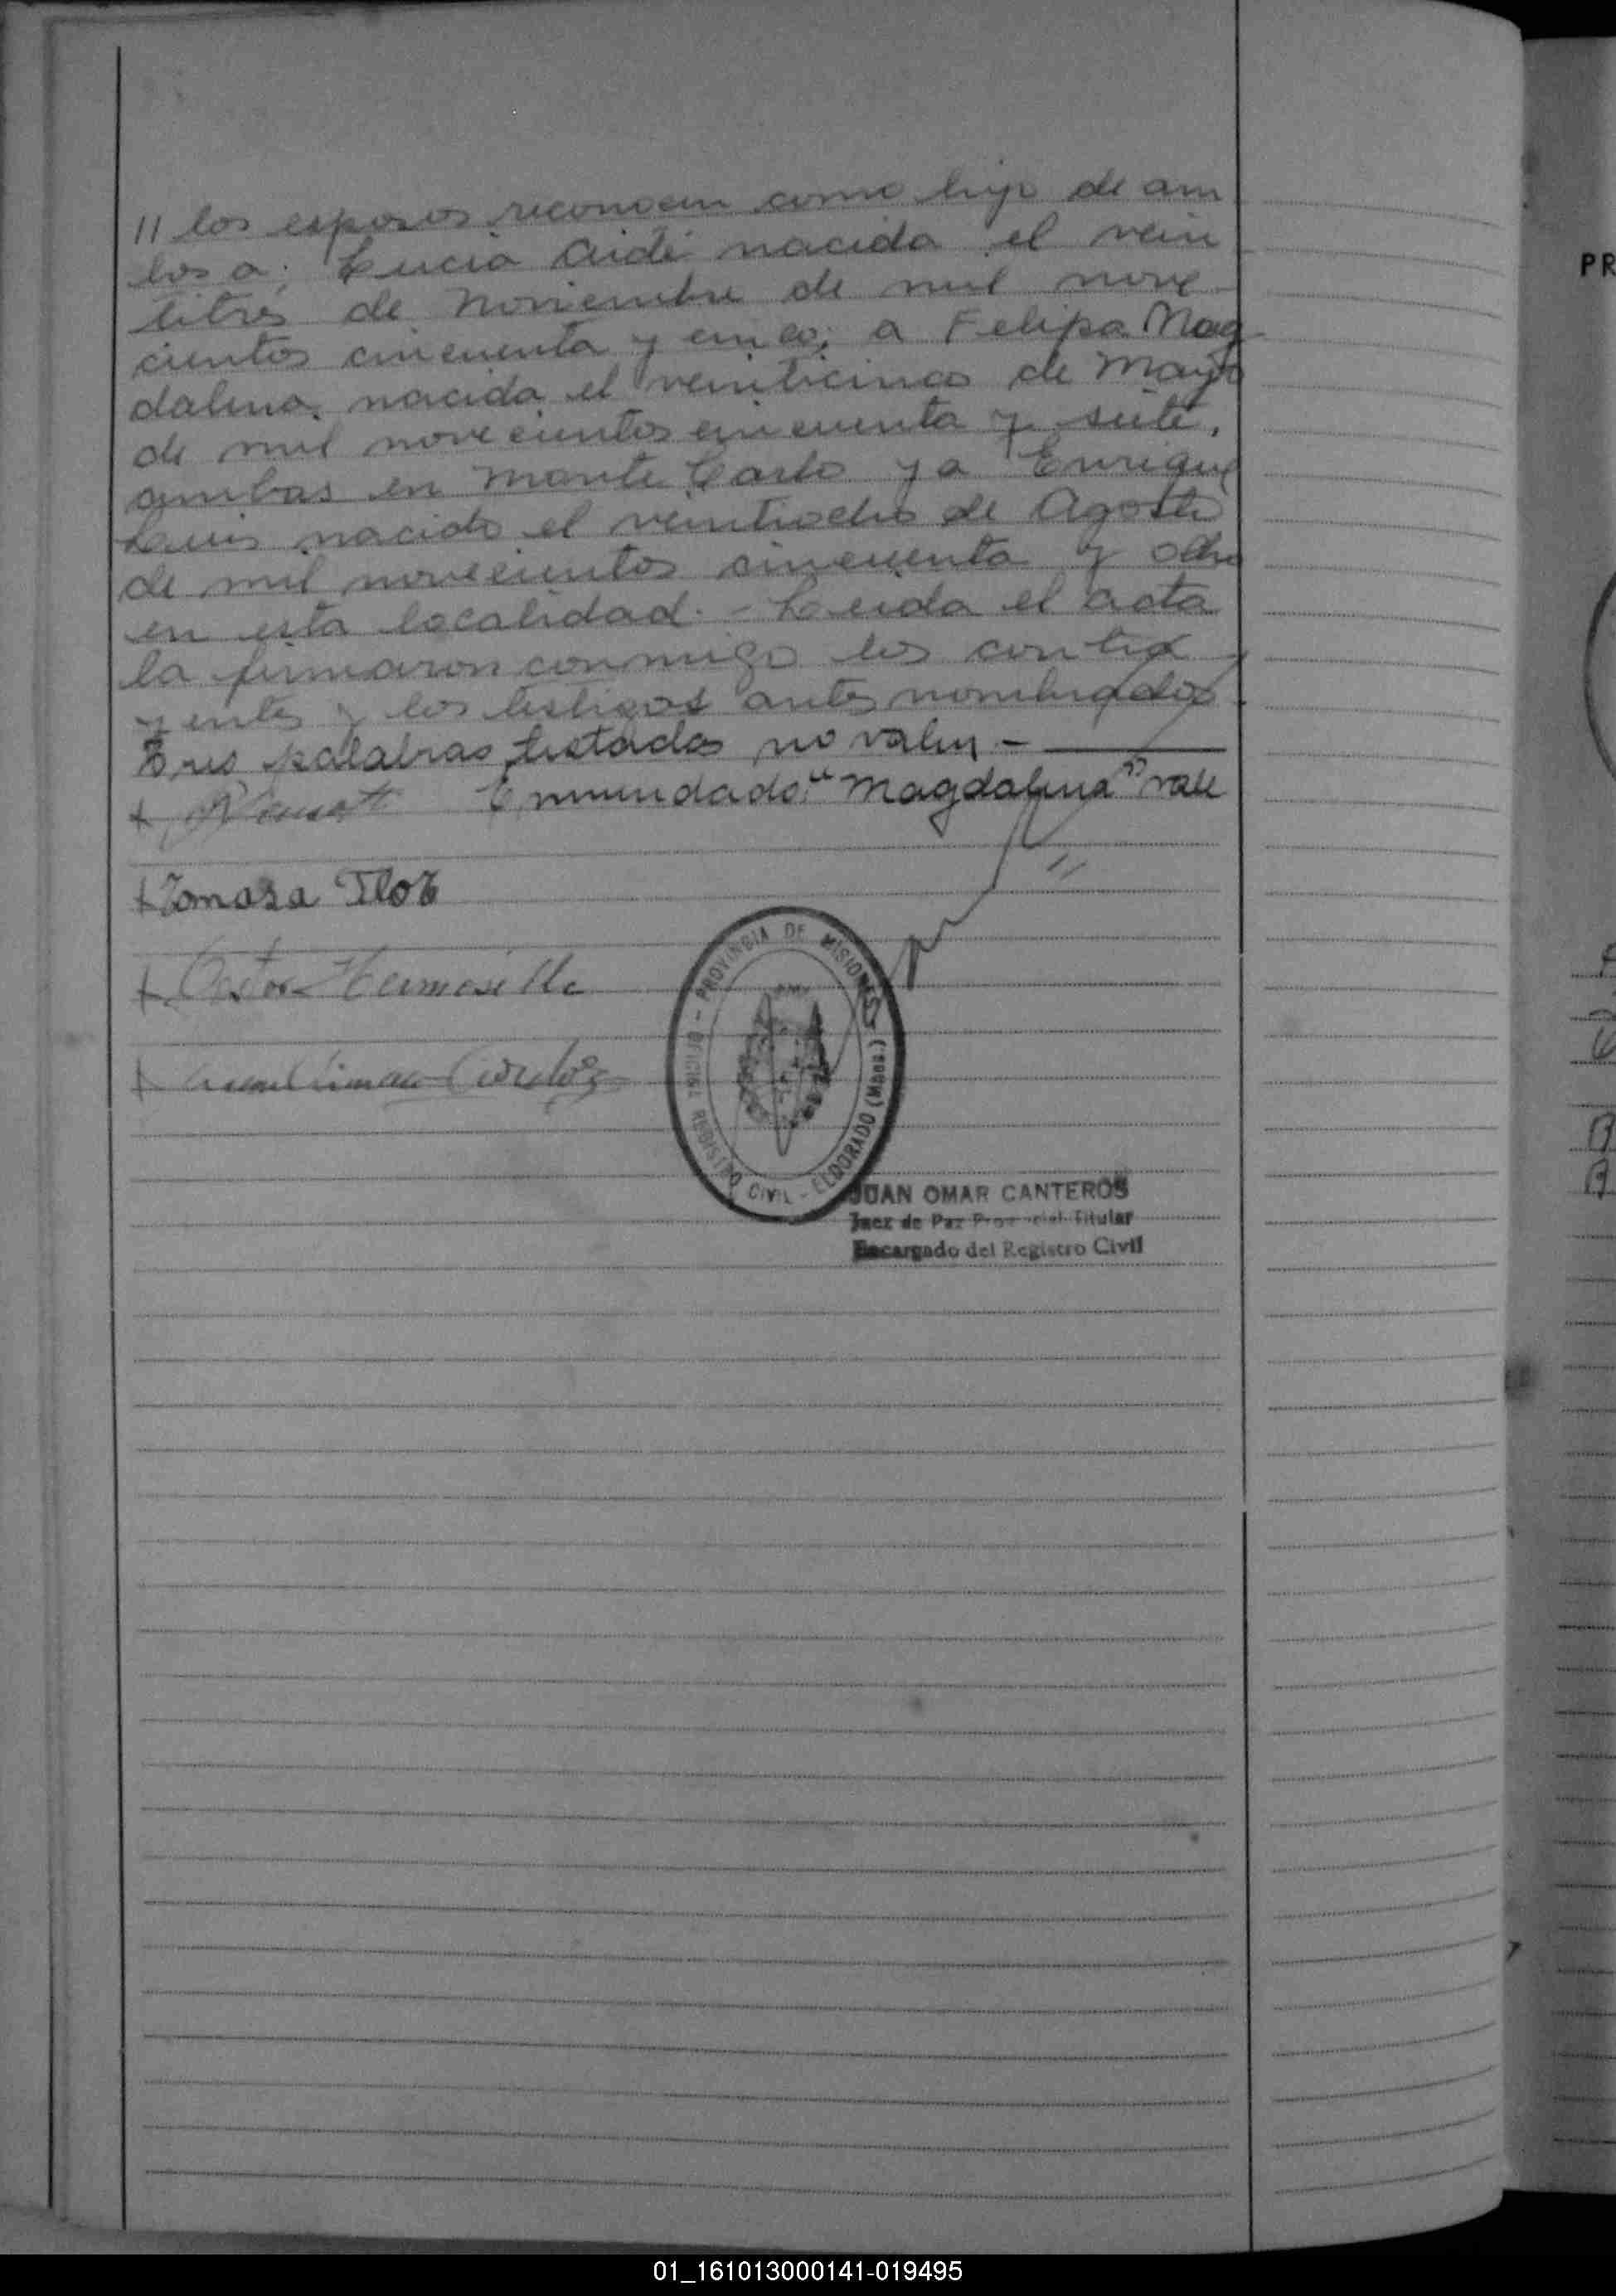 // los esposos reconocen como hijo de am
bos a: Lucia Aidé nacida el vein
titrés de Noviembre de mil nove
cientos cincuenta y cinco; a Felipa Mag
dalena, nacida el veinticinco de Mayo
de mil novecientos cincuenta y siete,
ambas en Monte Carlo y a Enrique
Luis nacido el veintiocho de Agosto
de mil novecientos cincuenta y ocho
en esta localidad.- Leida el acta
la firmaron conmigo los contra
yentes y los testigos antes nombrados
Tres palabras testadas no valen -
Enmendado: "Magdalena" vale
Tomasa Flor
Hermosilla
PROVINCIA DE MISIONES
- OFICINA REGISTRO CIVIL - ELDORADO (Mnes.)
JUAN OMAR CANTEROS
Juez de Paz Provincial Titular
Encargado del Registro Civil
PR
01_161013000141-019495